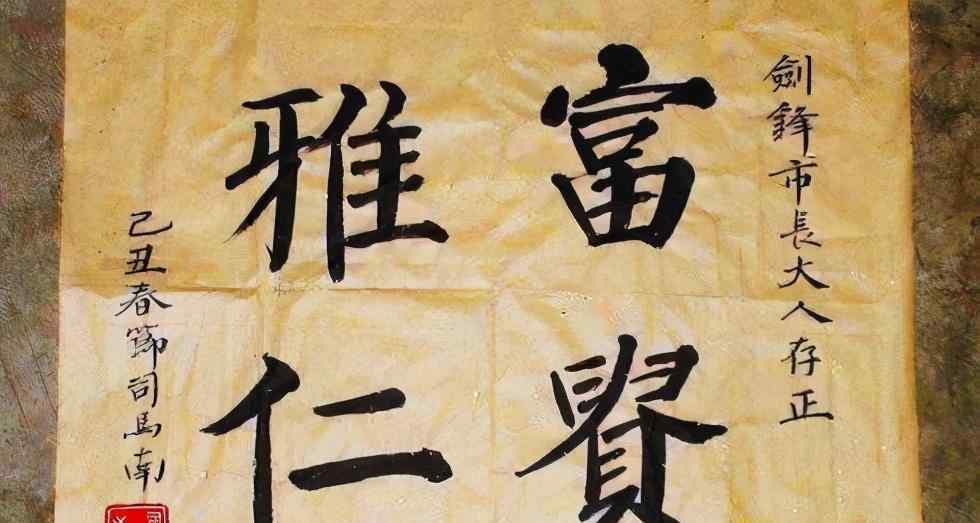 劍鋒市長大人存正
富賢
雅仁
己丑春節司馬南